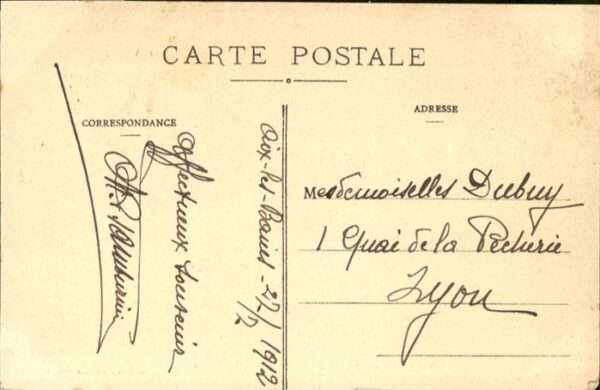 CARTE POSTALE
CORRESPONDANCE
ADRESSE
Aix-les-Bains - 27/7 1912
Affectueux souvenir
Mesdemoiselles Dubuy
1 Quai de la Pêcherie
Lyon